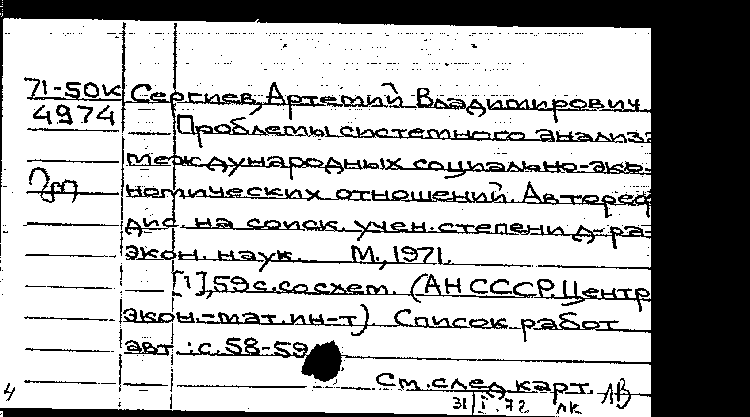 71-50к Сергиев, Артемий Владимирович
4974 Проблемы системного анализа
международных социально-эко-
номических отношений. Автореф
дис. на соиск. учен. степени д-ра
экон. наук. М., 1971.
[1], 59 с. со схем. (АН СССР. Центр
экон.-мат. ин-т). Список работ
авт.: с. 58-59
См. след. карт.
4 31/I.72